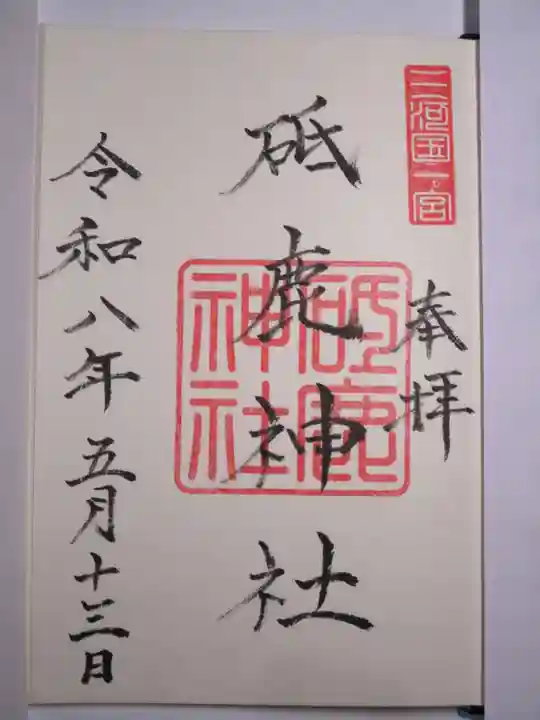 三河国一之宮
奉拝
砥鹿神社
砥鹿神社
令和八年五月十三日